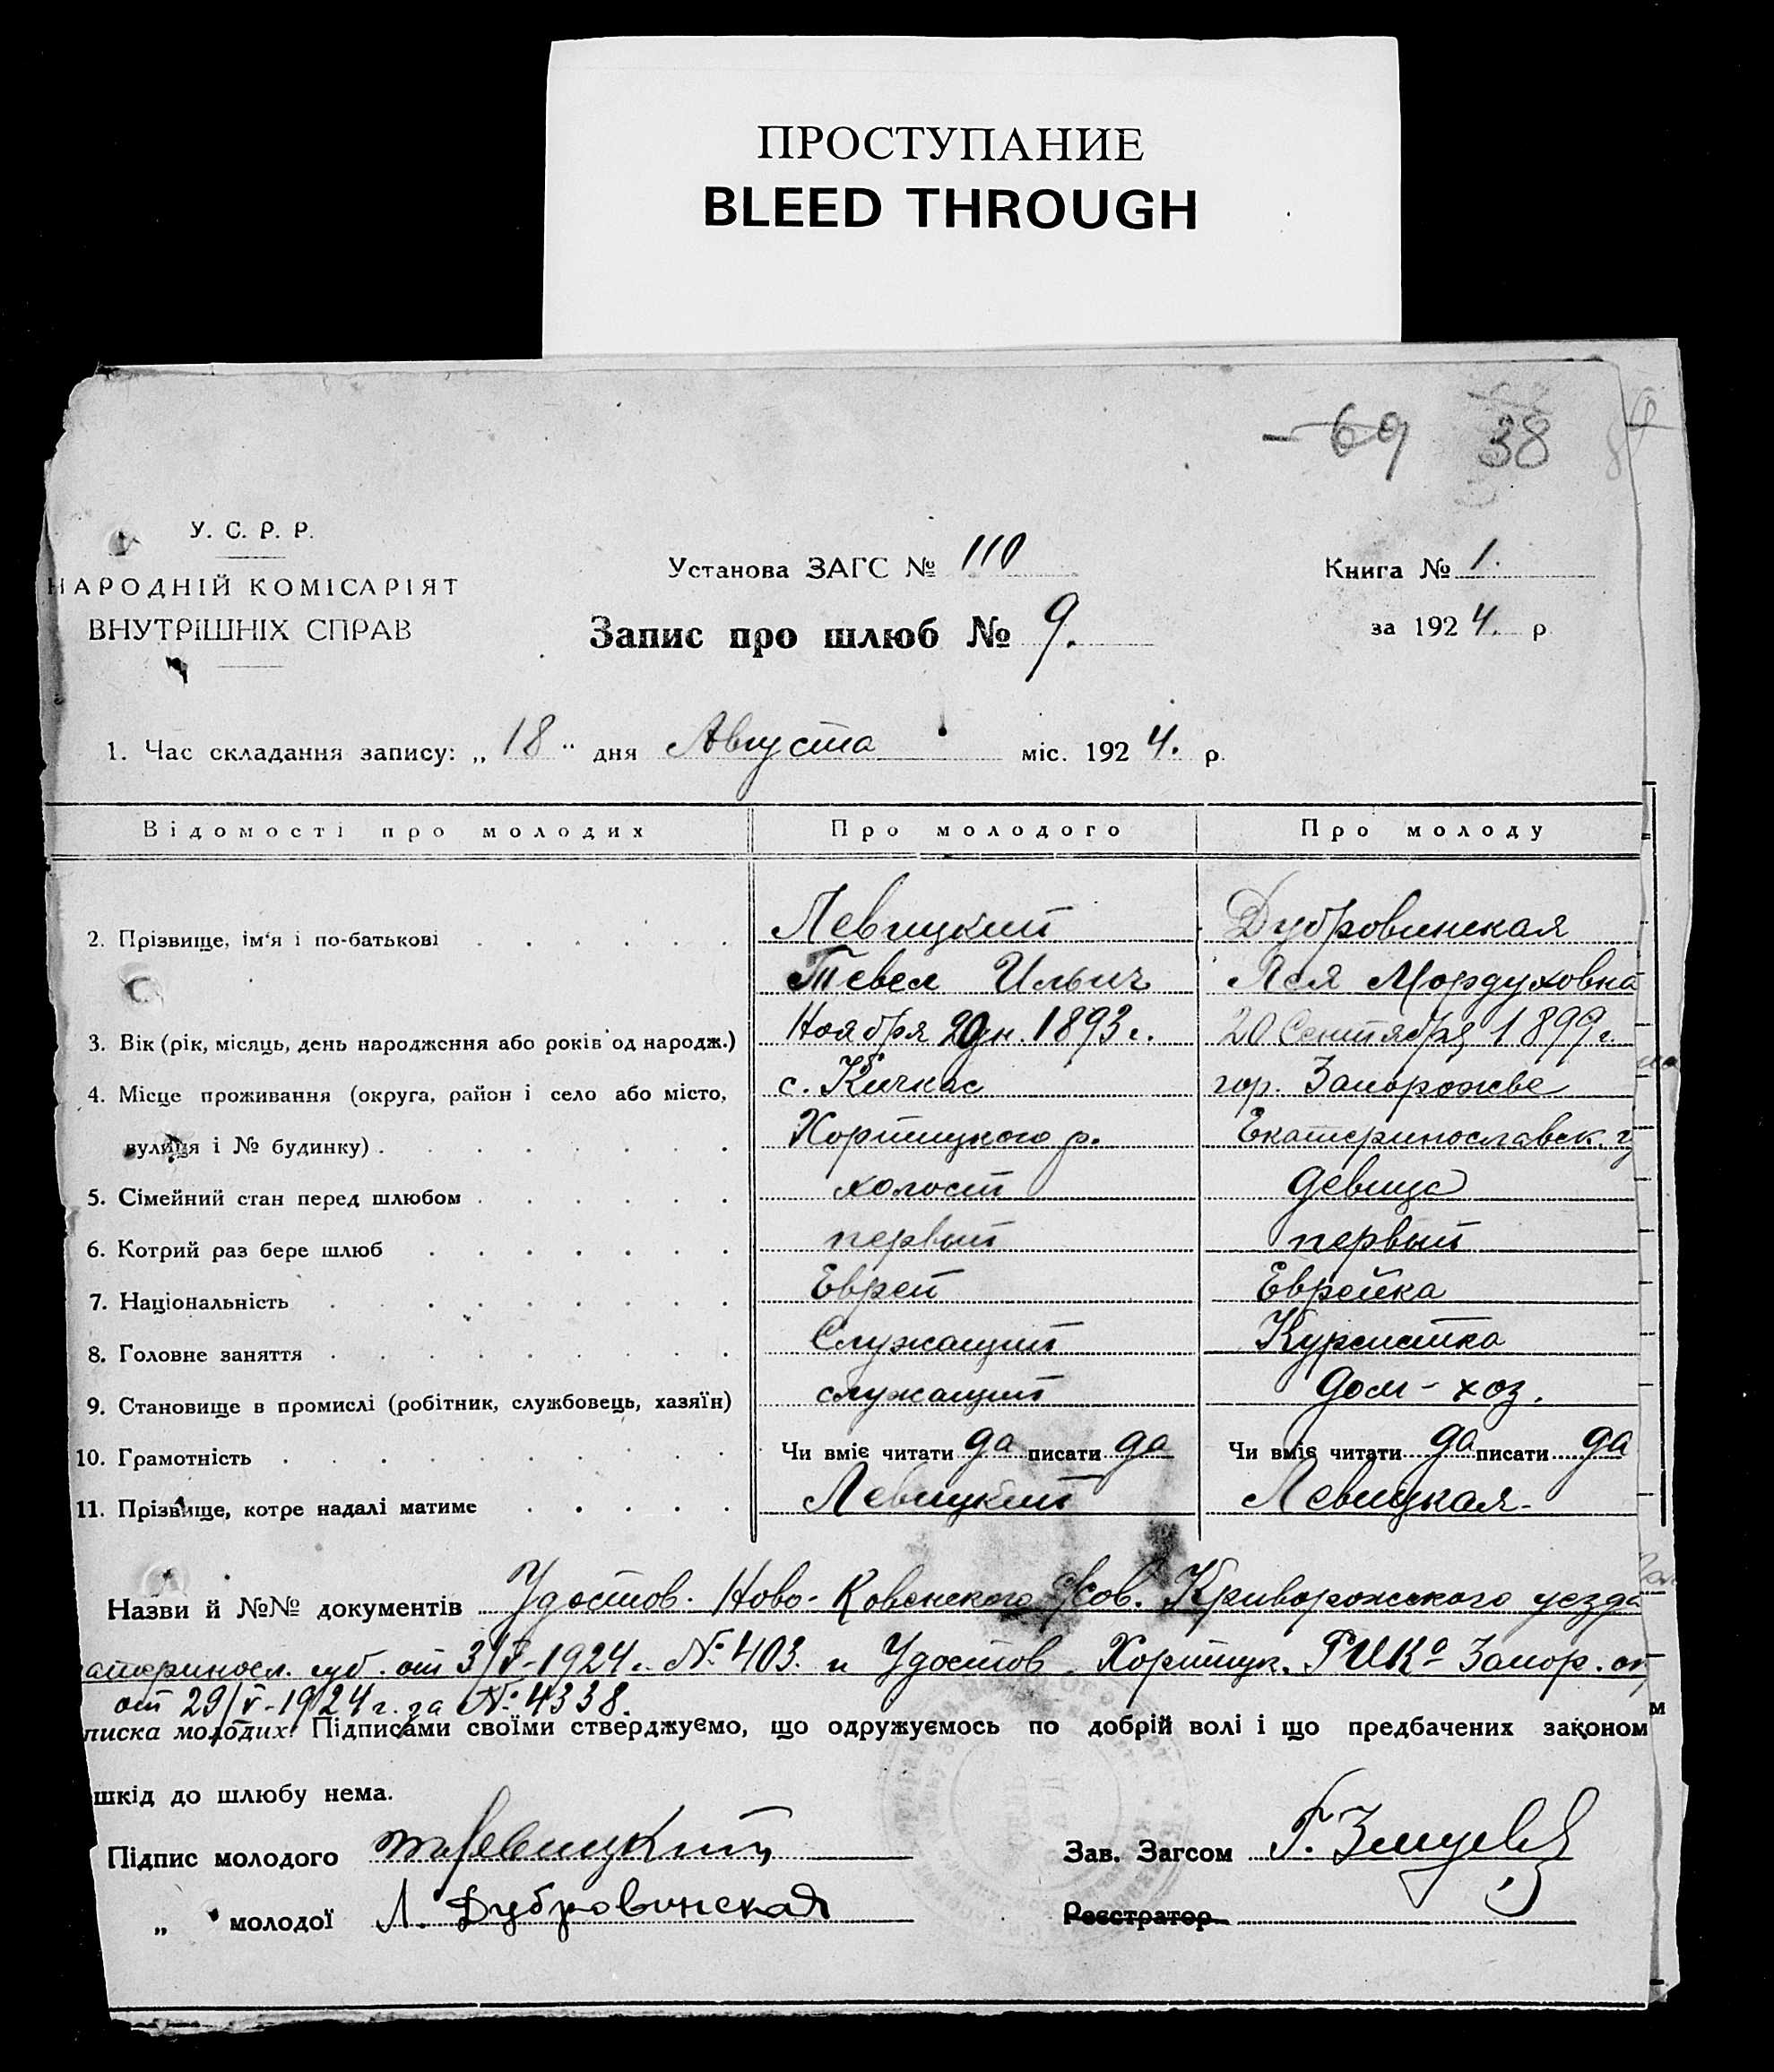 ПРОСТУПАНИЕ
BLEED THROUGH
69 38
У. С. Р. Р.
НАРОДНІЙ КОМІСАРІЯТ
ВНУТРІШНІХ СПРАВ
Установа ЗАГС № 110
Запис про шлюб № 9.
Книга № 1.
за 1924. р
1. Час складання запису: „ 18 " дня Августа міс. 1924. р.
Відомості про молодих Про молодого Про молоду
2. Прізвище, ім'я і по-батькові Левицкий Дубровинская
Тевел Ильич Лея Мордуховна
3. Вік (рік, місяць, день народження або років од народж.) Ноября 20 дн. 1893 г. 20 Сентября 1899 г.
4. Місце проживання (округа, район і село або місто, с. Кичкас гор. Запорожье
вулиця і № будинку) Хортицкого р. Екатеринославск. г
5. Сімейний стан перед шлюбом холост девица
6. Котрий раз бере шлюб первый первый
7. Національність Еврей Еврейка
8. Головне заняття Служащий Курсистка
9. Становище в промислі (робітник, службовець, хазяїн) служащий дом-хоз.
10. Грамотність Чи вміє читати да писати да Чи вміє читати да писати да
11. Прізвище, котре надалі матиме Левицкий Левицкая
Назви й №№ документів Удостов. Ново-Ковенского с/сов. Криворожского уезда
атериносл. губ. от 3/V-1924 г. № 403. и Удостов. Хортицк. РИКа Запор. ок
от 29/V-1924 г. за № 4338.
писка молодих. Підписами своїми стверджуємо, що одружуємось по добрій волі і що предбачених законом
шкід до шлюбу нема.
Підпис молодого Т Левицкий Зав. Загсом Г.
„ молодої Л. Дубровинская Реєстратор